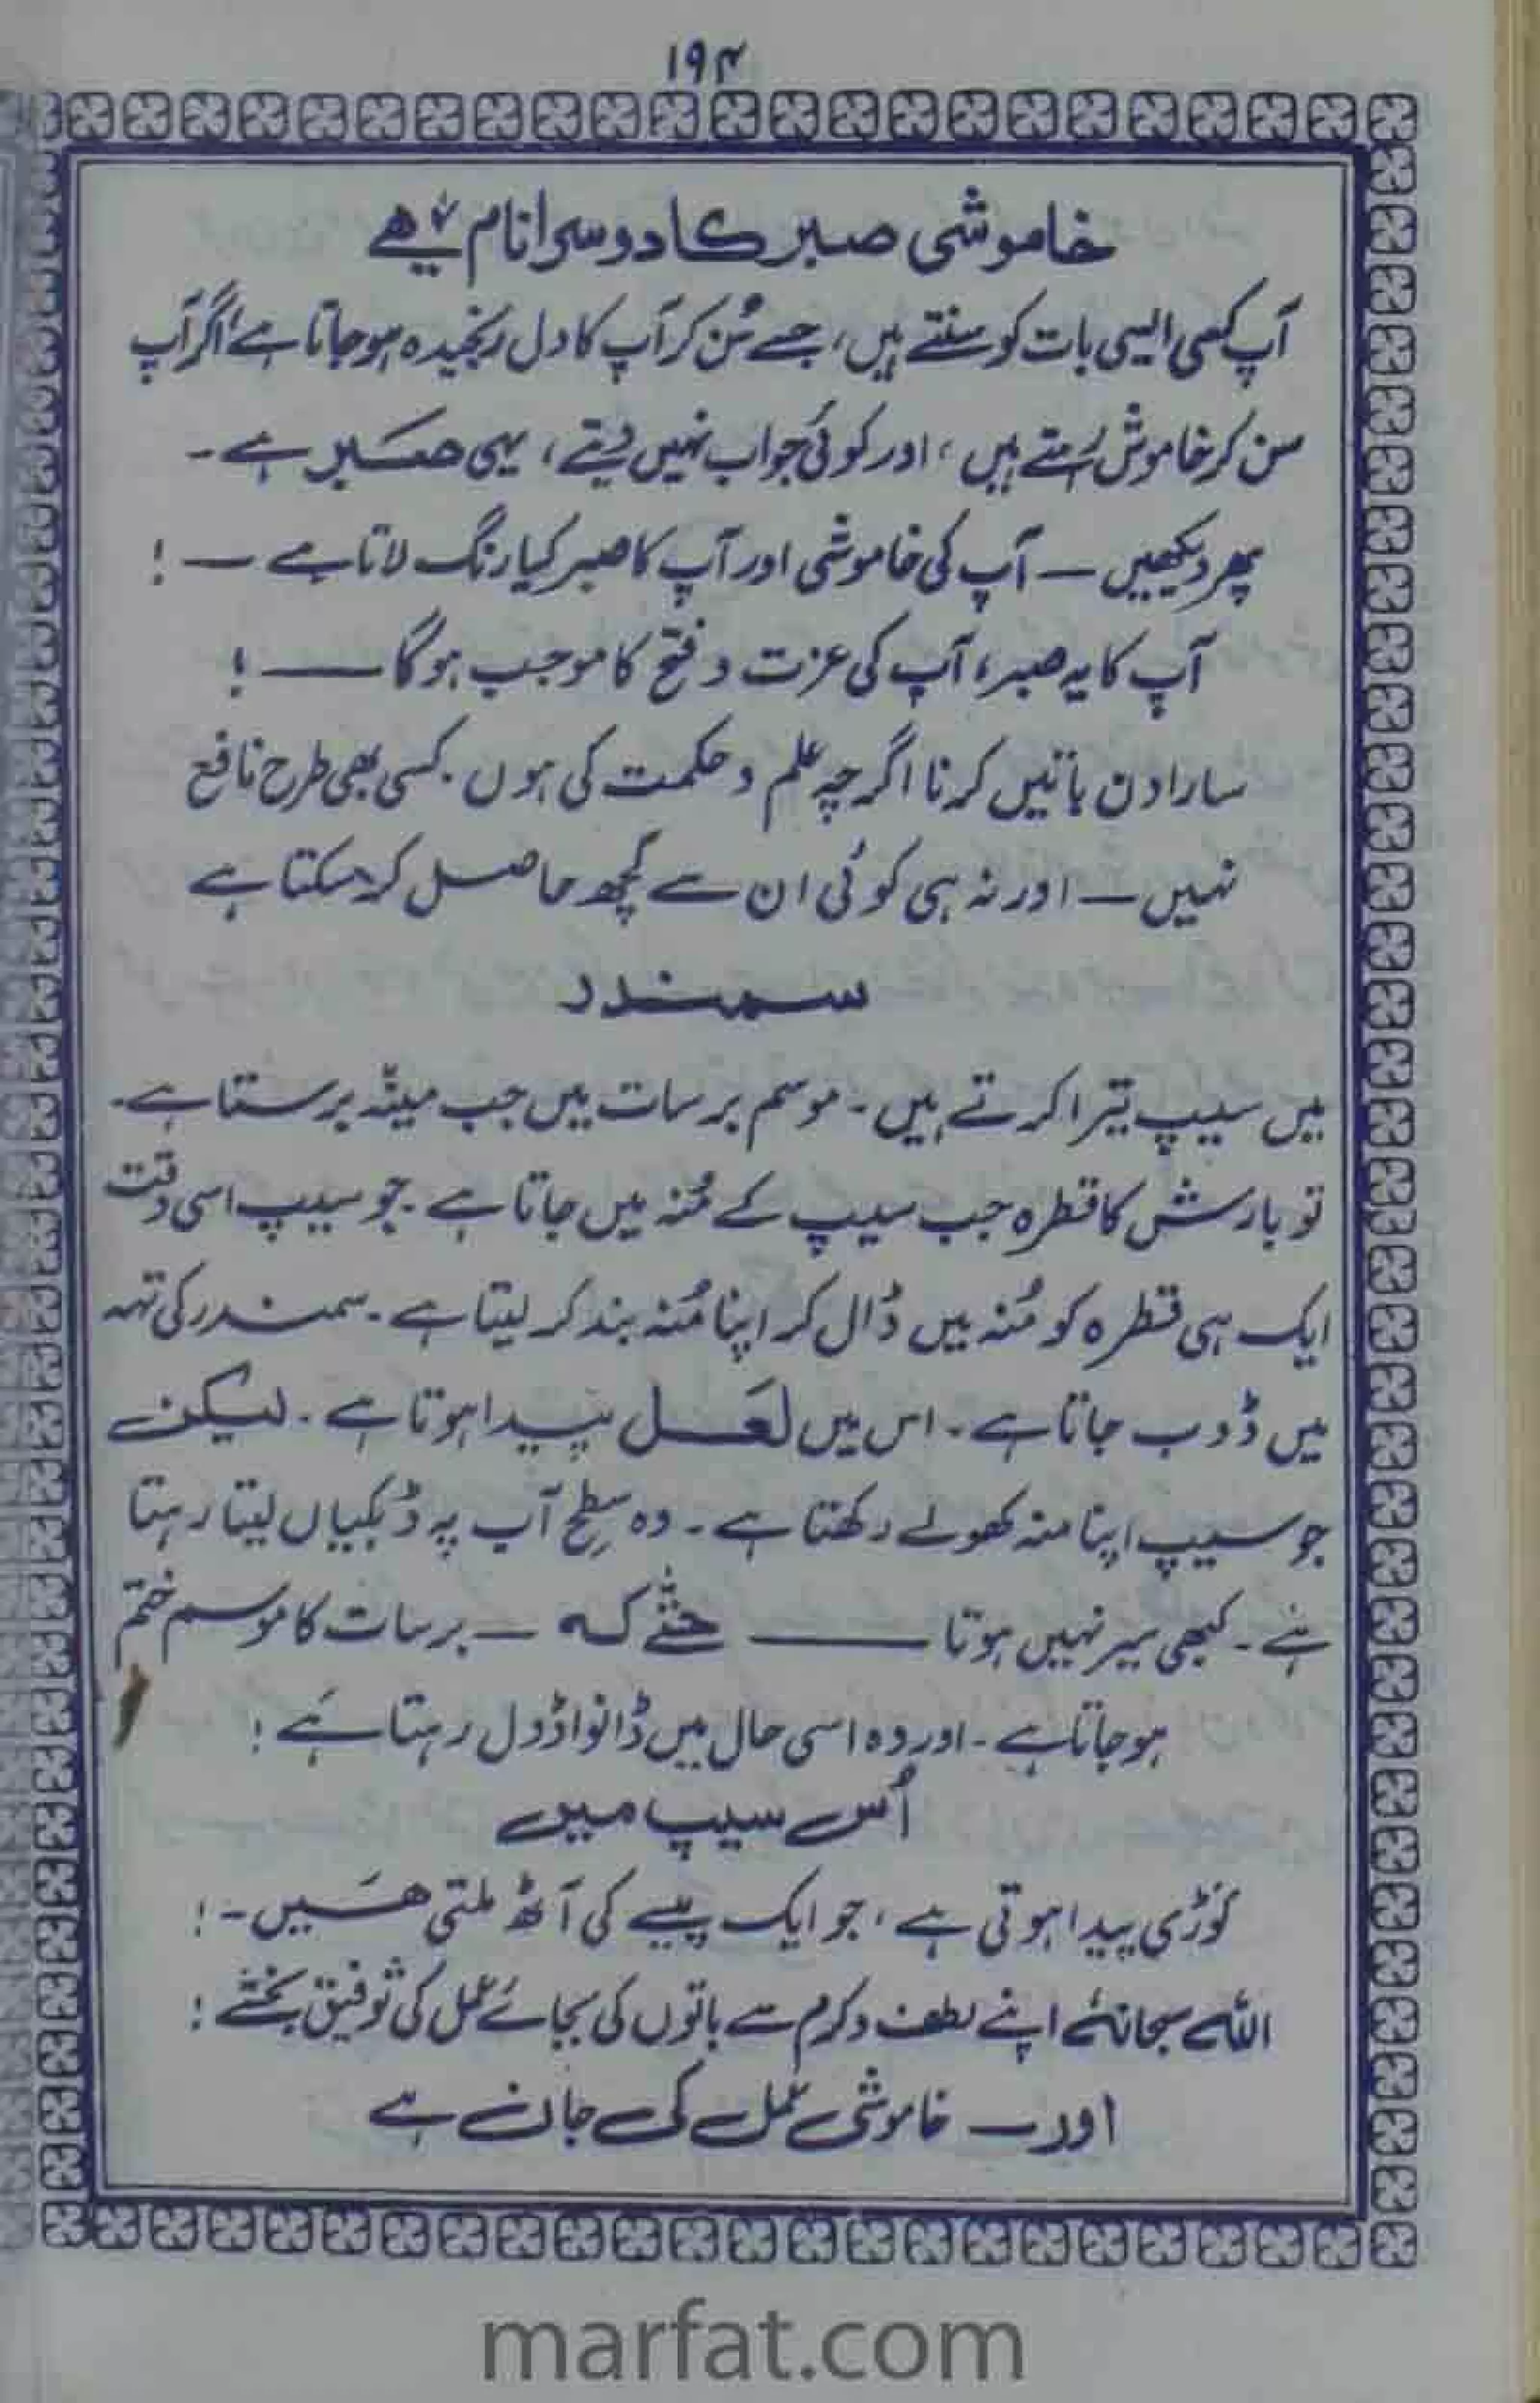 ۱۹۴
خاموشی صبر کا دوسرا نام ہے
آپ کسی ایسی بات کو سنتے ہیں، جسے سُن کر آپ کا دل رنجیدہ ہو جاتا ہے اگر آپ
سن کر خاموش رہتے ہیں، اور کوئی جواب نہیں دیتے، یہی صبر ہے۔
پھر دیکھیں — آپ کی خاموشی اور آپ کا صبر کیا رنگ لاتا ہے — !
آپ کا یہ صبر، آپ کی عزت و فتح کا موجب ہوگا — !
سارا دن باتیں کرنا اگرچہ علم و حکمت کی ہوں۔ کسی بھی طرح نافع
نہیں — اور نہ ہی کوئی ان سے کچھ حاصل کر سکتا ہے
سمندر
میں سیپ تیرا کرتے ہیں۔ موسم برسات میں جب مینہ برستا ہے۔
تو بارش کا قطرہ جب سیپ کے مُنہ میں جاتا ہے۔ جو سیپ اسی وقت
ایک ہی قطرہ کو مُنہ میں ڈال کر اپنا مُنہ بند کر لیتا ہے۔ سمندر کی تہہ
میں ڈوب جاتا ہے۔ اس میں لَعَل پیدا ہوتا ہے۔ لیکن
جو سیپ اپنا منہ کھولے رکھتا ہے۔ وہ سطحِ آب پہ ڈبکیاں لیتا رہتا
ہَے۔ کبھی سیر نہیں ہوتا —— حتّٰے کہ — برسات کا موسم ختم
ہو جاتا ہے۔ اور وہ اسی حال میں ڈانواڈول رہتا ہَے !
اُس سیپ میں
کَوڑی پیدا ہوتی ہے، جو ایک پیسے کی آٹھ ملتی ہَیں۔ !
اللہ سبحانہٗ اپنے لطف و کرم سے باتوں کی بجائے عمل کی توفیق بخشے !
اور — خاموشی عمل کی جان ہے
marfat.com